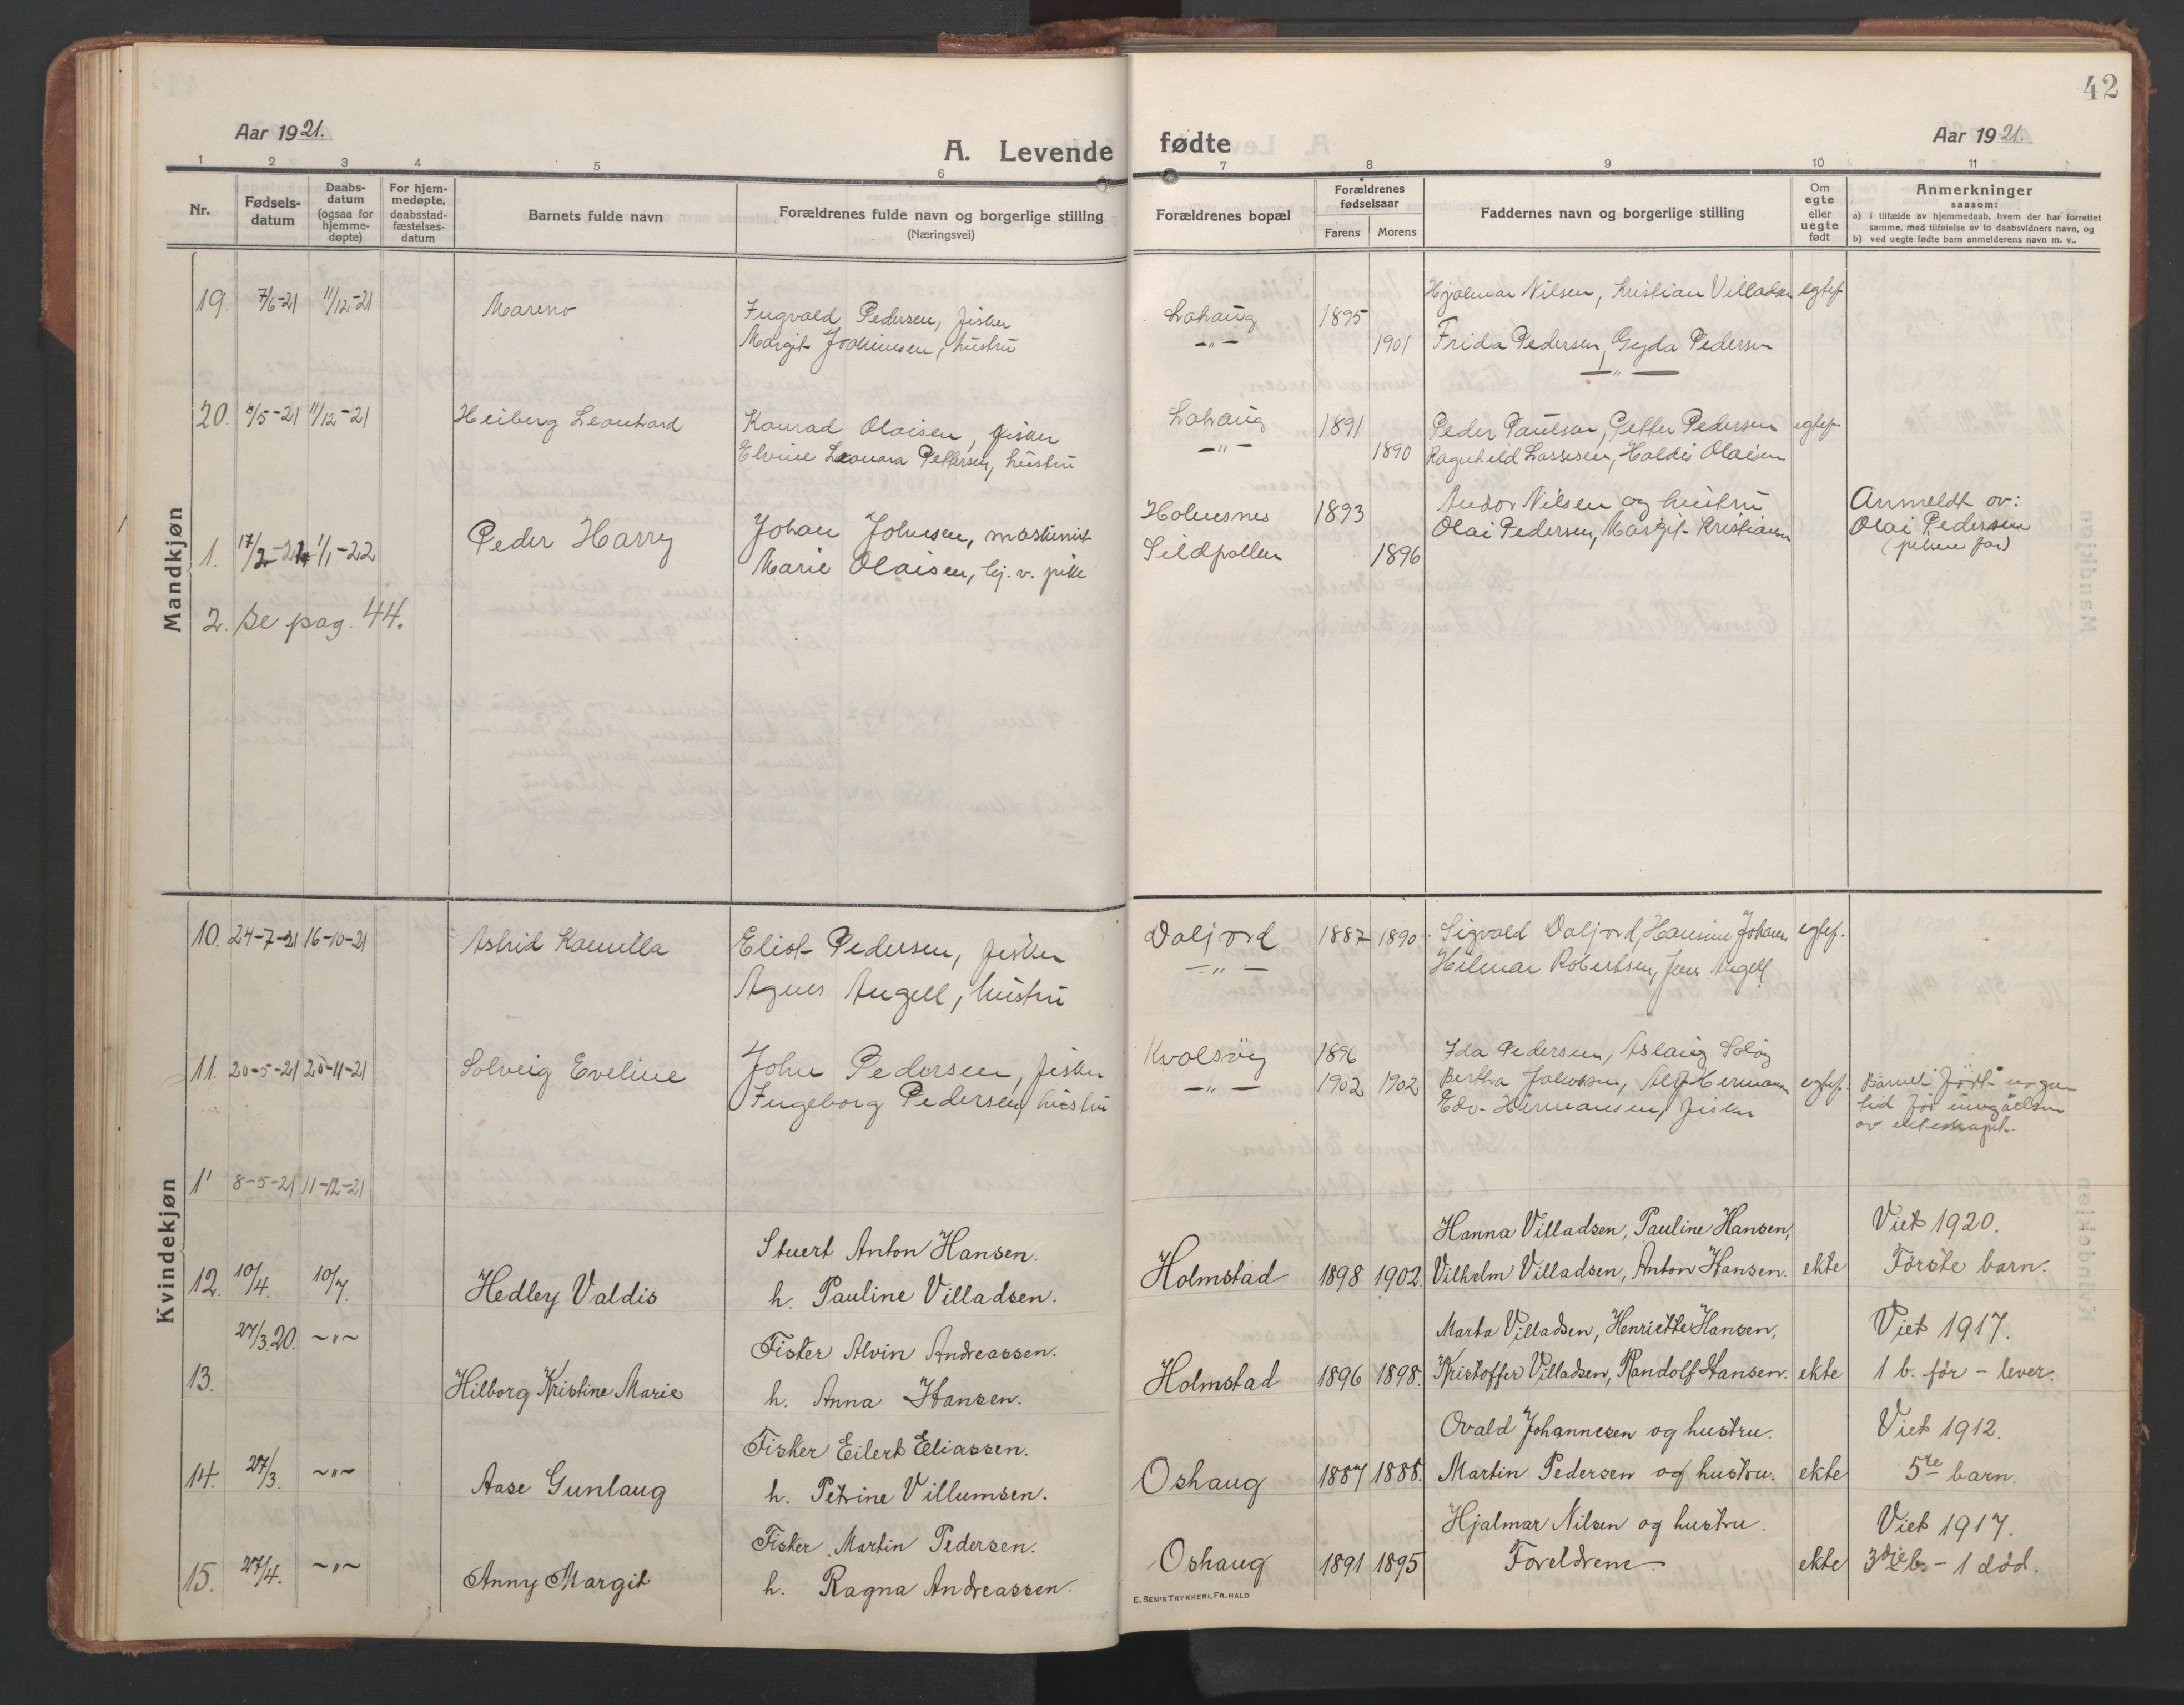 42
Aar 1921.
A. Levende fødte
Aar 1921.
1 2 3 4 5 6 7 8 9 10 11
Nr.
Fødsels-
datum
Daabs-
datum
(ogsaa for
hjemme-
døpte)
For hjem-
medøpte,
daabsstad-
fæstelses-
datum
Barnets fulde navn
Forældrenes fulde navn og borgerlige stilling
(Næringsvei)
Forældrenes bopæl
Forældrenes
fødselsaar
Farens Morens
Faddernes navn og borgerlige stilling
Om
egte
eller
uegte
født
Anmerkninger
saasom:
a) i tilfælde av hjemmedaab, hvem der har forrettet
samme, med tilføielse av to daabsvidners navn, og
b) ved uegte fødte barn anmelderens navn m. v..
Mandkjøn
Hjalmar Nilsen, Kristian Villadsen egtef.
19. 7/6-21 11/12-21 Mareno Ingvald Pedersen, fisker Lahaug 1895
Margit Joakimsen, hustru -"- 1901 Frida Pedersen, Gyda Pedersen
-"-
20. 8/5-21 11/12-21 Heiberg Leonhard Konrad Olaisen, fisker Lahaug 1891 Peder Paulsen, Petter Pedersen egtef.
Elvine Leonara Pettersen, hustru -"- 1890 Ragnhild Lassesen, Haldis Olaisen
Andor Nilsen og hustru Anmeldt av:
1. 17/2-21 1/1-22 Peder Harry Johan Johnsen, maskinist Holmesnes 1893 Olai Pedersen, Margit Kristiansen Olai Pedersen
Marie Olaisen, hj. v. pike Sildpollen 1896 (pikens far)
2. se pag. 44.
Kvindekjøn
10. 24-7-21 16-10-21 Astrid Kamilla Eliot Pedersen, fisker Daljord 1887 1890 Sigvald Daljord, Hansine Johansen egtef.
Agnes Angell, hustru -"- Hilmar Robertsen, Jens Angell
11. 20-5-21 20-11-21 Solveig Eveline John Pedersen, fisker Kvalsøy 1896 Ida Pedersen, Aslaug Soløy
Ingeborg Pedersen, hustru -"- 1902 1902 Bertha Jakobsen, Alf Hermansen egtef. Barnet født nogen
Edv. Hermansen, fisker tid før inngåelsen
av ekteskapet.
1' 8-5-21 11-12-21
Stuert Anton Hansen. Hanna Villadsen, Pauline Hansen, Viet 1920.
12. 10/4. 10/7. Hedley Valdis h. Pauline Villadsen. Holmstad 1898 1902. Vilhelm Villadsen, Anton Hansen. ekte Förste barn.
27/3.20. -"- Fisker Alvin Andreassen. Marta Villadsen, Henriette Hansen, Viet 1917.
13. Hilborg Kristine Marie h. Anna Hansen. Holmstad 1896 1898. Kristoffer Villadsen, Randolf Hansen. ekte 1 b. för - lever.
Fisker Eilert Eliassen. Ovald Johannesen og hustru. Viet 1912.
14. 27/3. -"- Aase Gunlaug h. Petrine Villumsen. Oshaug 1887 1888. Martin Pedersen og hustru. ekte 5te barn.
Fisker Martin Pedersen. Hjalmar Nilsen og hustru. Viet 1917.
15. 27/4. -"- Anny Margit h. Ragna Andreassen. Oshaug 1891 1895 Foreldrene. ekte 3dje b. - 1 död.
E. SEM'S TRYKKERI, FR.HALD